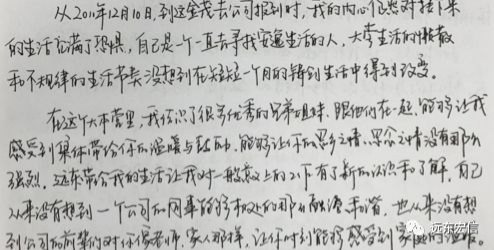 从2011年12月10日,到这金茂去公司报到时,我的内心仍然对接下来
的生活充满了恐惧,自己是一个一直去寻找安逸生活的人,大学生活的懒散
和不规律的生活节奏没想到在短短一个月的辅到生活中得到改变。
在这个大本营里,我结识了很多优秀的兄弟姐妹,跟他们在一起,能够让我
感受到集体带给你的温暖与鼓励,能够让你的思乡之情、思念之情没有那么
强烈。远东带给我的生活让我对一般意义上的工作有了新的认识和了解,自己
从来没有想到一个公司的同事能够相处的那么融洽和谐,也从来没有想
到公司的前辈们对你像老师,家人那样,让你时刻能够感受到家的温暖。
远东宏信